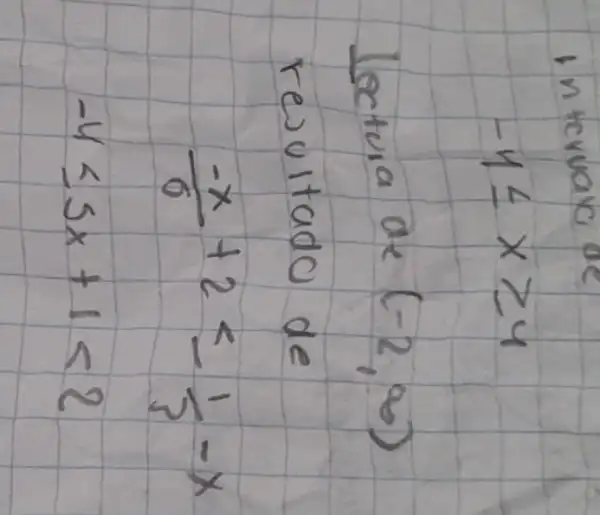 intervalo de
-4 ≤ x ≥ 4
lectura de (-2, ∞)
resultado de
-x/6 + 2 ≤ 1/3 - x
-4 ≤ 5x + 1 < 2